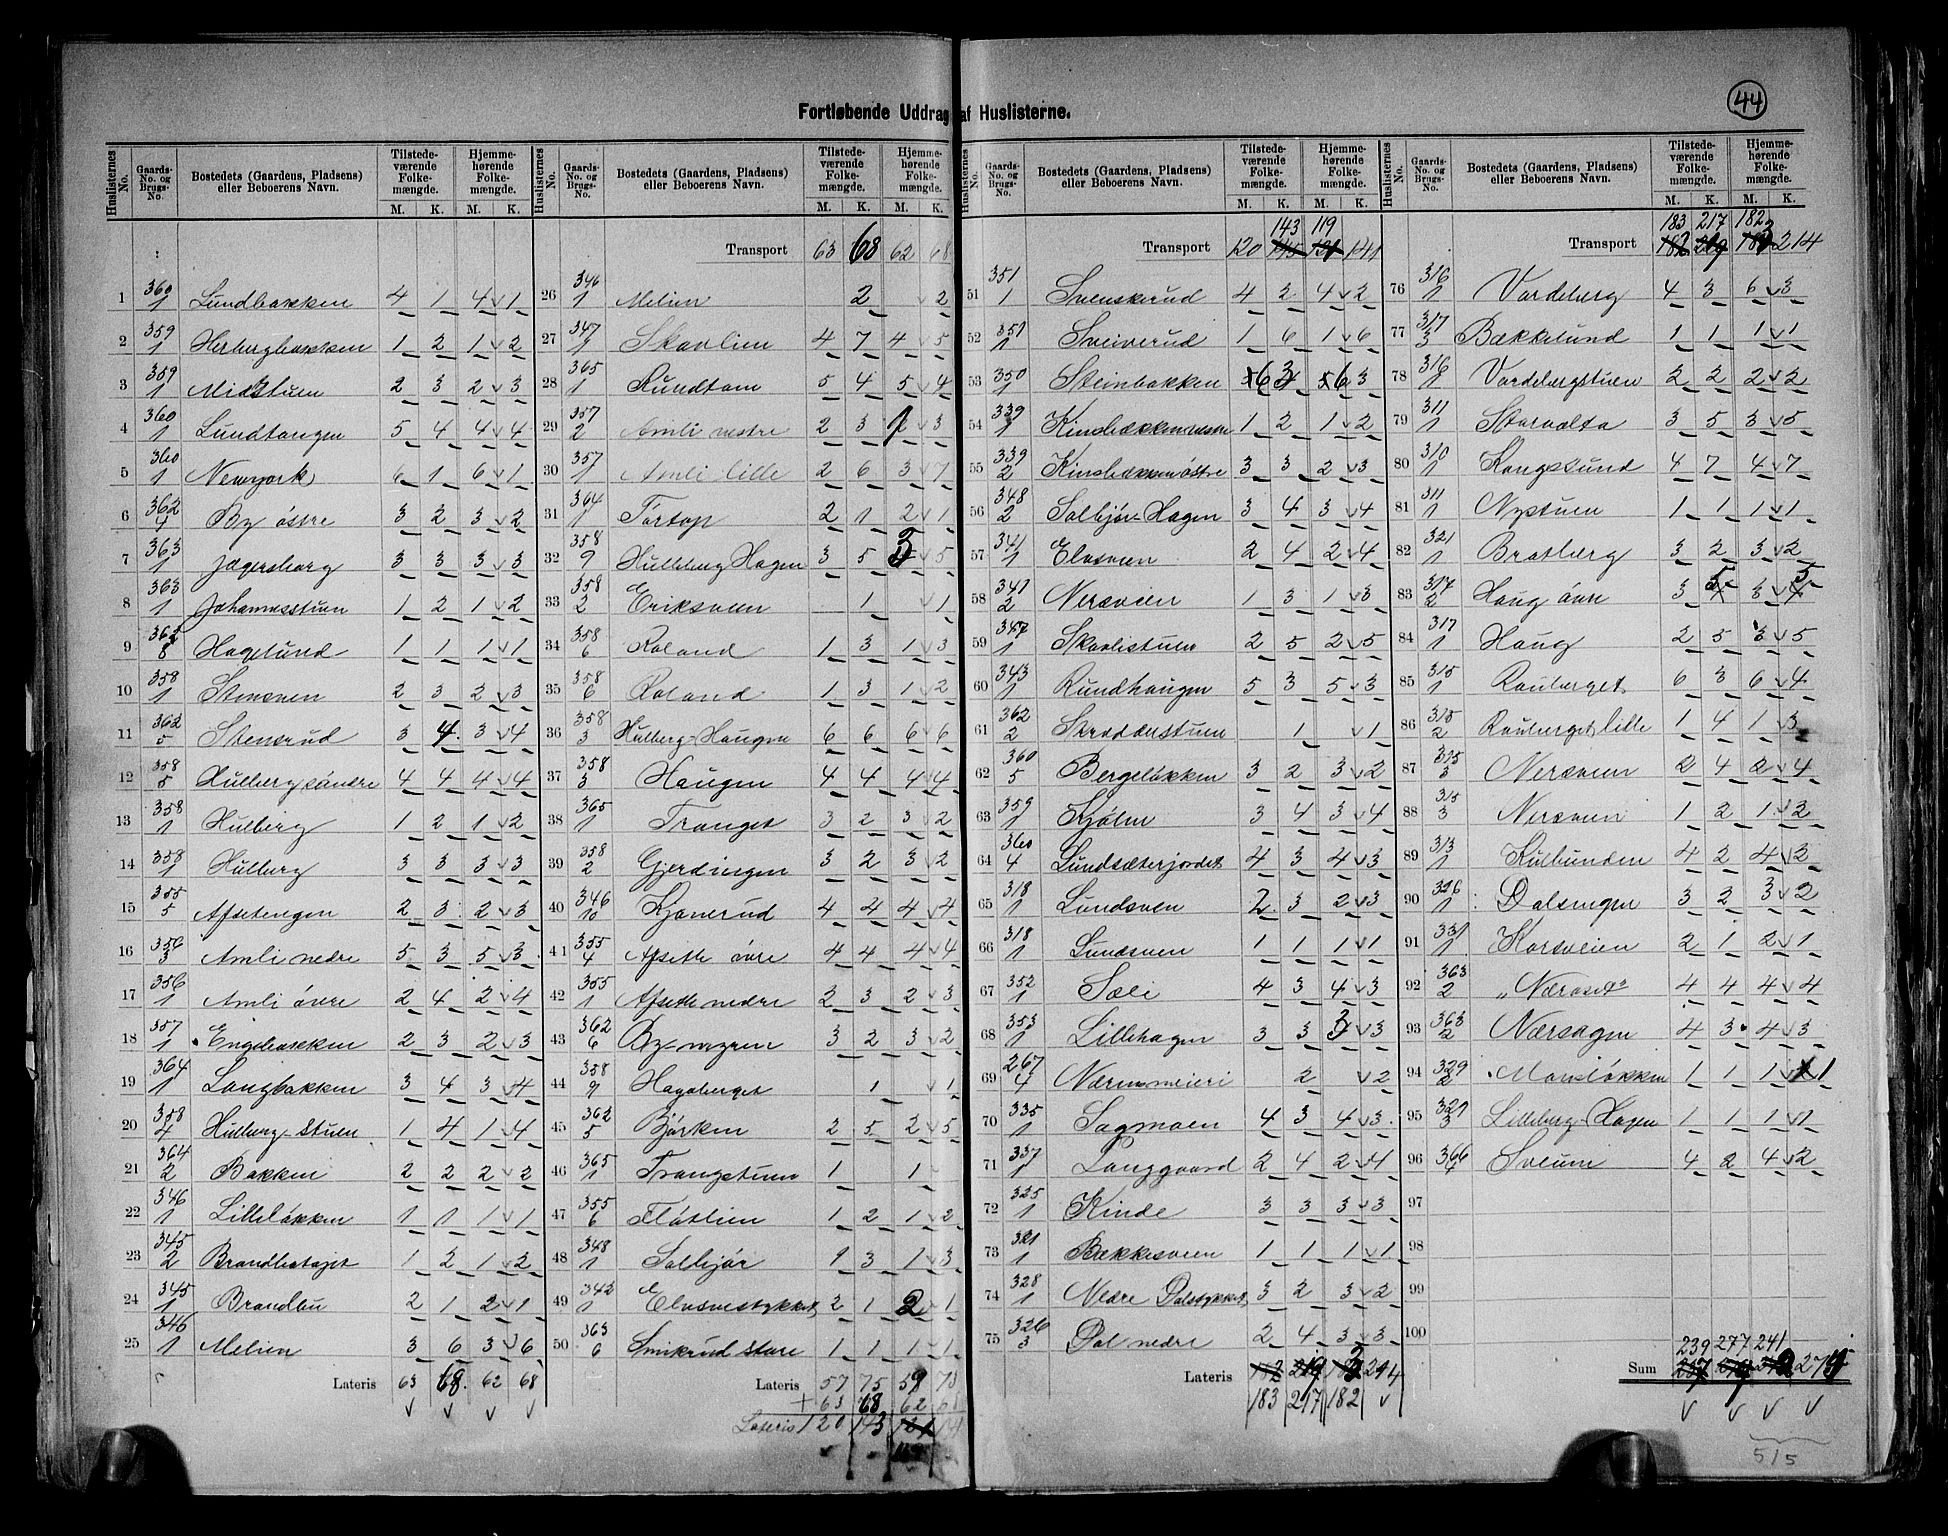 44
Fortløbende Uddrag af Huslisterne.
Huslisternes No. Gaards-No. og Brugs-No. Bostedets (Gaardens, Pladsens) eller Beboerens Navn. Tilstedeværende Folkemængde. M. K. Hjemmehørende Folkemængde. M. K.
1 360/1 Lundbakken 4 1 4 1
2 359/1 Herbergbakken 1 2 1 2
3 359/1 Midtstuen 2 3 2 3
4 360/1 Lundtangen 5 4 4 4
5 360/1 Newyork 6 1 6 1
6 362/4 By østre 3 2 3 2
7 363/1 Jægersborg 3 3 3 3
8 363/1 Johannesstuen 1 2 1 2
9 362/8 Hagelund 1 1 1 1
10 358/1 Stensveen 2 3 2 3
11 362/5 Stensrud 3 4 3 4
12 358/5 Hulberg søndre 4 4 4 4
13 358/1 Hulberg 1 2 1 2
14 358/1 Hulberg 3 3 3 3
15 355/5 Afsetengen 2 3 2 3
16 356/3 Amli nedre 5 3 5 3
17 356/1 Amli øvre 2 4 2 4
18 357/1 Engebakken 2 3 2 3
19 364/1 Langbakken 3 4 3 4
20 358/4 Hulberg-stuen 1 4 1 4
21 364/2 Bakken 2 2 2 2
22 346/1 Lilleløkken 1 1 1 1
23 345/2 Brandbustøjet 1 2 1 2
24 345/1 Brandbu 2 1 2 1
25 346/1 Melien 3 6 3 6
Lateris 63 68 62 68
Transport 63 68 62 68
26 346/1 Melien 2 2
27 347/1 Skavlien 4 7 4 5
28 365/1 Rundtom 5 4 5 4
29 357/2 Amli vestre 2 3 1 3
30 357/1 Amli lille 2 6 3 7
31 364/1 Tortop 2 1 2 1
32 358/9 Hulleberg Hagen 3 5 3 5
33 358/2 Eriksveen 1 1
34 358/6 Roland 1 3 1 3
35 358/6 Roland 1 3 1 2
36 358/3 Hulberg-Haugen 6 6 6 6
37 358/3 Haugen 4 4 4 4
38 365/1 Tranget 3 2 3 2
39 358/2 Gjerdingen 3 2 3 2
40 346/10 Kjonerud 4 4 4 4
41 355/4 Afsette øvre 4 4 4 4
42 355/1 Afsette nedre 2 3 2 3
43 362/6 By-myren 3 2 3 2
44 358/9 Hagaberget 1 1
45 362/5 Bjørken 2 5 2 5
46 365/1 Trangstuen 1 1
47 355/6 Flåtlien 1 2 1 2
48 348/1 Solbjør 1 3 1 3
49 342/1 Elvsvestykket 2 1 2 1
50 363/6 Smikrud store 1 1 1 1
Lateris 57 75 59 73
+63 68 62 68
Lateris 120 143 121 141
143 119
Transport 120 145 121 141
51 351/1 Svenskerud 4 2 4 2
52 351/1 Sveiverud 1 6 1 6
53 350/1 Steinbakken 6 3 6 3
54 339/1 Kinsbækken vestre 1 2 1 2
55 339/2 Kinsbækken østre 3 3 2 3
56 348/2 Solbjør-Hagen 3 4 3 4
57 341/1 Elvsveen 2 4 2 4
58 341/2 Nersveen 1 3 1 3
59 347/1 Skavlistuen 2 5 2 5
60 343/1 Rundhaugen 5 3 5 3
61 362/2 Skrædderstuen 1 1
62 360/5 Bergeløkken 3 2 3 2
63 359/1 Kjølen 3 4 3 4
64 360/4 Lundsæterjordet 4 3 4 3
65 318/1 Lundsveen 2 3 2 3
66 318/1 Lundsveen 1 1 1 1
67 352/1 Sæli 4 3 4 3
68 353/1 Lillehagen 3 3 3 3
69 267/4 Nærmsmeieri 2 2
70 335/1 Sagmoen 4 3 4 3
71 337/1 Langgaard 2 4 2 4
72 325/1 Kinde 3 3 3 3
73 321/1 Bækkesveen 1 1 1 1
74 328/1 Nedre Dalstykket 3 2 3 2
75 326/3 Dal nedre 2 4 3 3
Lateris 182 219 183 214
183 217 182
183 217 182
Transport 182 219 183 214
76 316/1 Vardeberg 4 3 6 3
77 317/3 Bækkelund 1 1 1 1
78 316/1 Vardebergstuen 2 2 2 2
79 311/1 Storvolta 3 5 3 5
80 310/1 Kongslund 4 7 4 7
81 311/1 Nystuen 1 1 1 1
82 321/1 Bratberg 3 2 3 2
83 314/2 Haug øvre 3 5 3 5
84 317/1 Haug 2 5 3 5
85 315/1 Rauberget 6 3 6 4
86 315/2 Rauberget lille 1 4 1 3
87 315/3 Nersveen 2 4 2 4
88 315/3 Nersveen 1 2 1 2
89 313/1 Kulbunden 4 2 4 2
90 326/1 Dalsengen 3 2 3 2
91 331/1 Korsveien 2 1 2 1
92 363/2 „Næroset" 4 4 4 4
93 363/2 Nærsagen 4 3 4 3
94 329/2 Moniløkken 1 1 1 1
95 321/3 Lilleberg-Hagen 1 1 1 1
96 366/4 Sveum 4 2 4 2
97
98
99
100
239 277 241
Sum 275
515